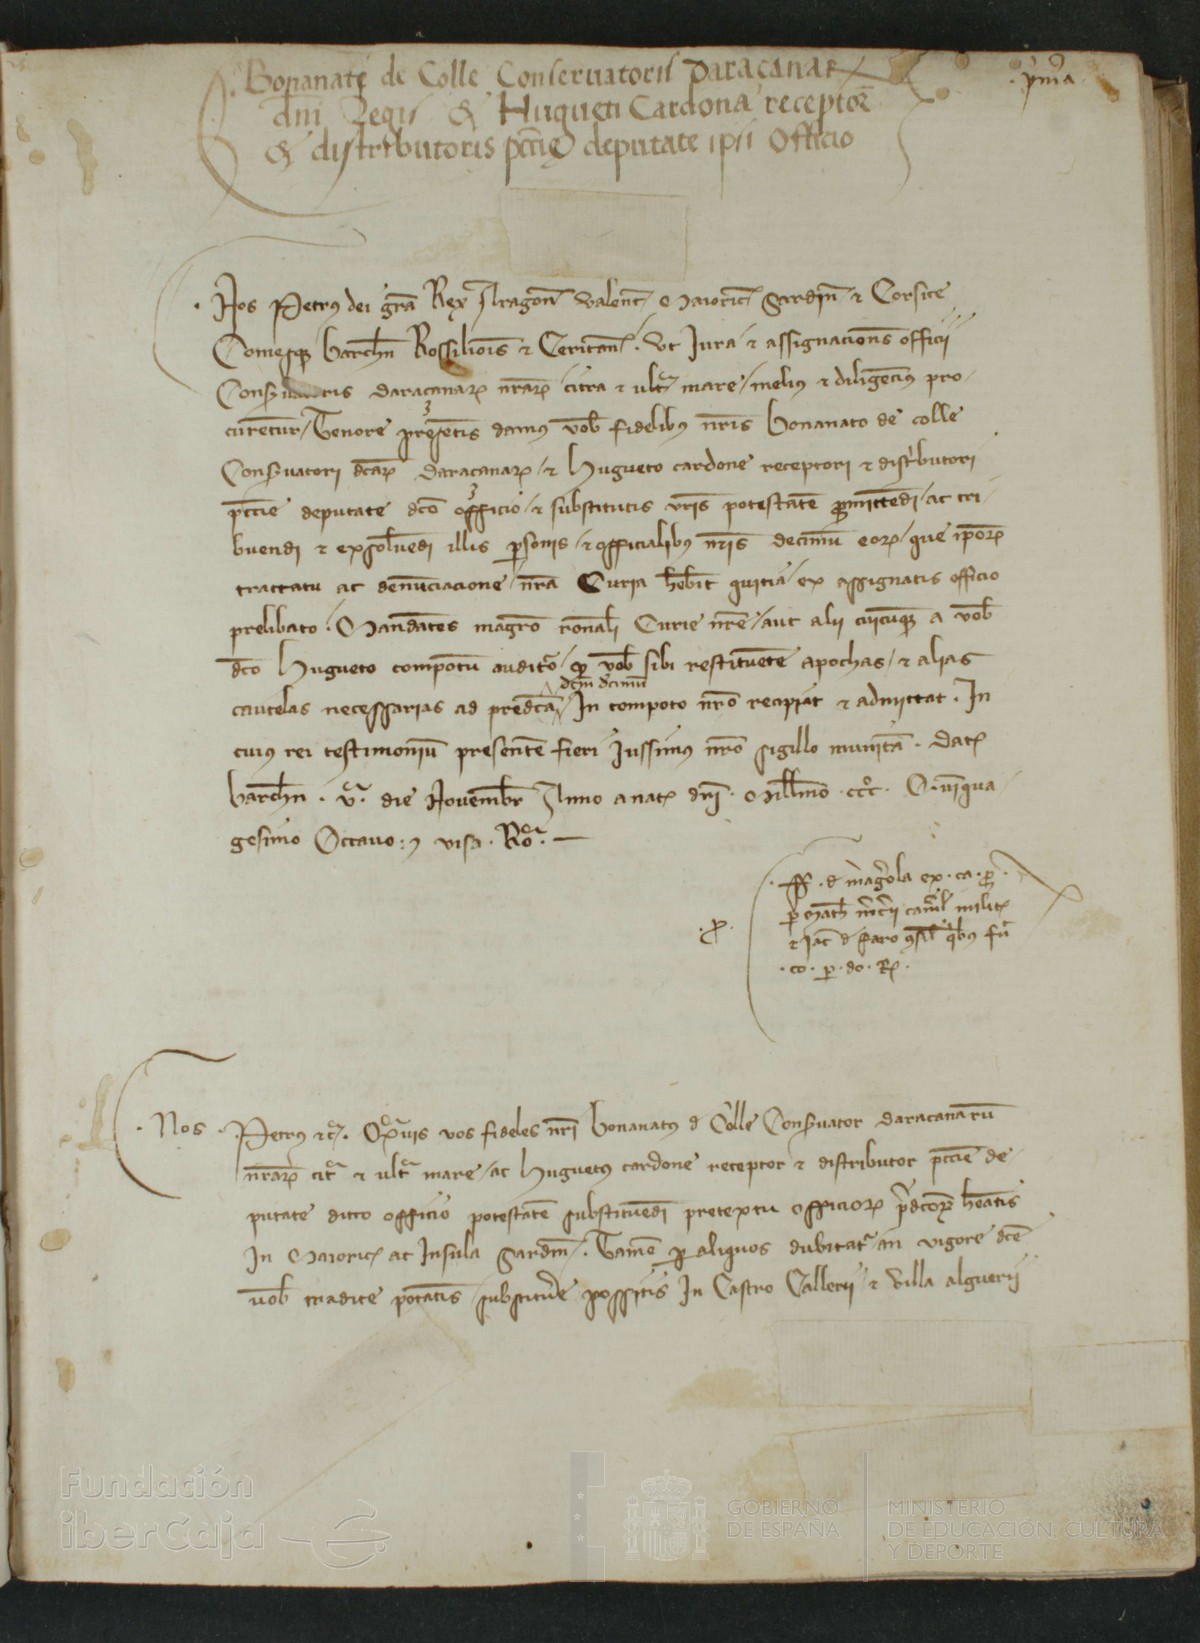 Bonanati de Colle Conservatoris Daraçanar
prima
dni Regis & Hugueti Cardona receptor
& distributoris pccie deputate ipsi Officio
Nos Petrus dei gra Rex Aragon Valenc Maioric Sardin et Corsice
Comesque barchn Rossilionis et Ceritan. Ut Iura et assignacions officii
Conservatoris daraçanar nrar citra et ultra mare melius et diligencius pro
curentur Tenore presentis damus vob fidelibus nris bonanato de colle
Conservatori dcar daraçanar et hugueto cardone receptori et distributori
pccie deputate dco officio et substitutis vris potestatem promittendi ac tri
buendi et exsolvendi illis personis et officialibus nris decimum eor que ipor
tractatu ac denunciacione nra Curia hebit quitia ex assignatis officio
prelibato. Mandantes magro ronali Curie nre aut alii cuicumque a vob
dco hugueto compotum auditor quod vob sibi restituente apochas et alias
dcm decimum
cautelas necessarias ad predcam In compoto nro recipiat et admittat. In
cuius rei testimonium presentem fieri Iussimus nro sigillo munitam. Dat
barchn. va. die Novembr Anno a nat dni. Millmo. ccco. Quinqua
gesimo Octavo: visa. Ro.
ff. de magrola ex. ca. pr
p math mcerii caml milit
et iac de faro quibus fu
co. p. do. R.
Nos Petrus etc. Quamvis vos fideles nri bonanatus de Colle Conservator daraçanarum
nrar citra et ultra mare ac huguetus cardone receptor et distributor pccie de
putate dicto officio potestatem substituendi pretextu officior predcor heatis
In Maioric ac Insula Sardin. Tamen per aliquos dubitatur an vigore dce
vob tradite potatis substituere possitis In Castro Callerii et Villa alguerii
Fundación
iberCaja
GOBIERNO
DE ESPAÑA
MINISTERIO
DE EDUCACIÓN, CULTURA
Y DEPORTE